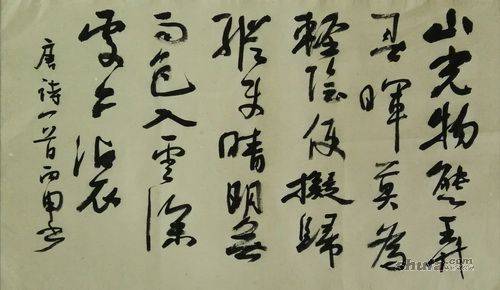 山光物態弄
春暉莫為
輕陰便擬歸
縱使晴明無
雨色入雲深
處亦沾衣
唐詩一首丙申書